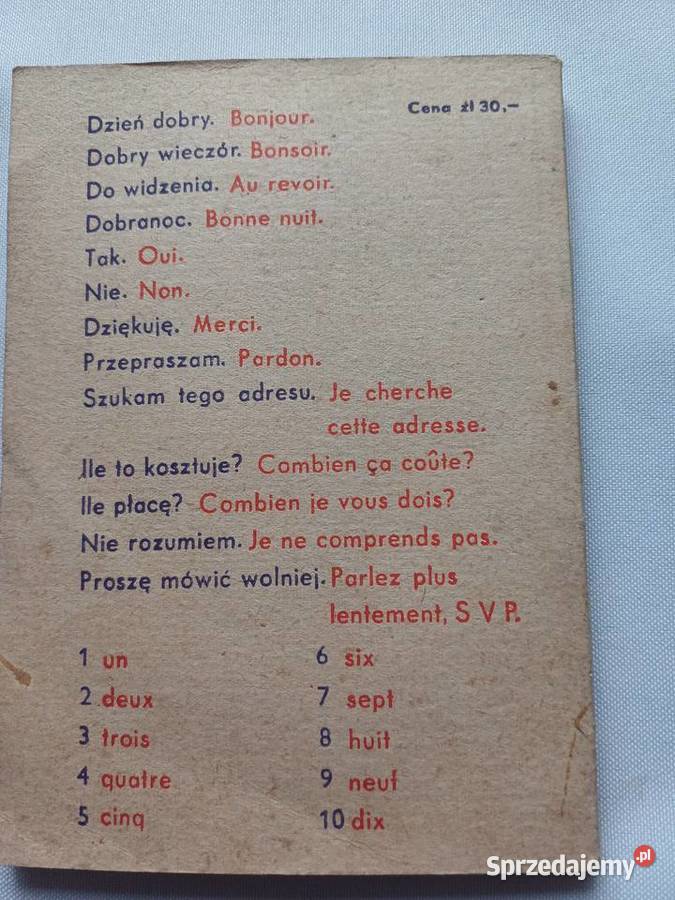 Cena zł 30,–
Dzień dobry. Bonjour.
Dobry wieczór. Bonsoir.
Do widzenia. Au revoir.
Dobranoc. Bonne nuit.
Tak. Oui.
Nie. Non.
Dziękuję. Merci.
Przepraszam. Pardon.
Szukam tego adresu. Je cherche
cette adresse.
Ile to kosztuje? Combien ça coûte?
Ile płacę? Combien je vous dois?
Nie rozumiem. Je ne comprends pas.
Proszę mówić wolniej. Parlez plus
lentement, S V P.
1 un
2 deux
3 trois
4 quatre
5 cinq
6 six
7 sept
8 huit
9 neuf
10 dix
Sprzedajemy.pl